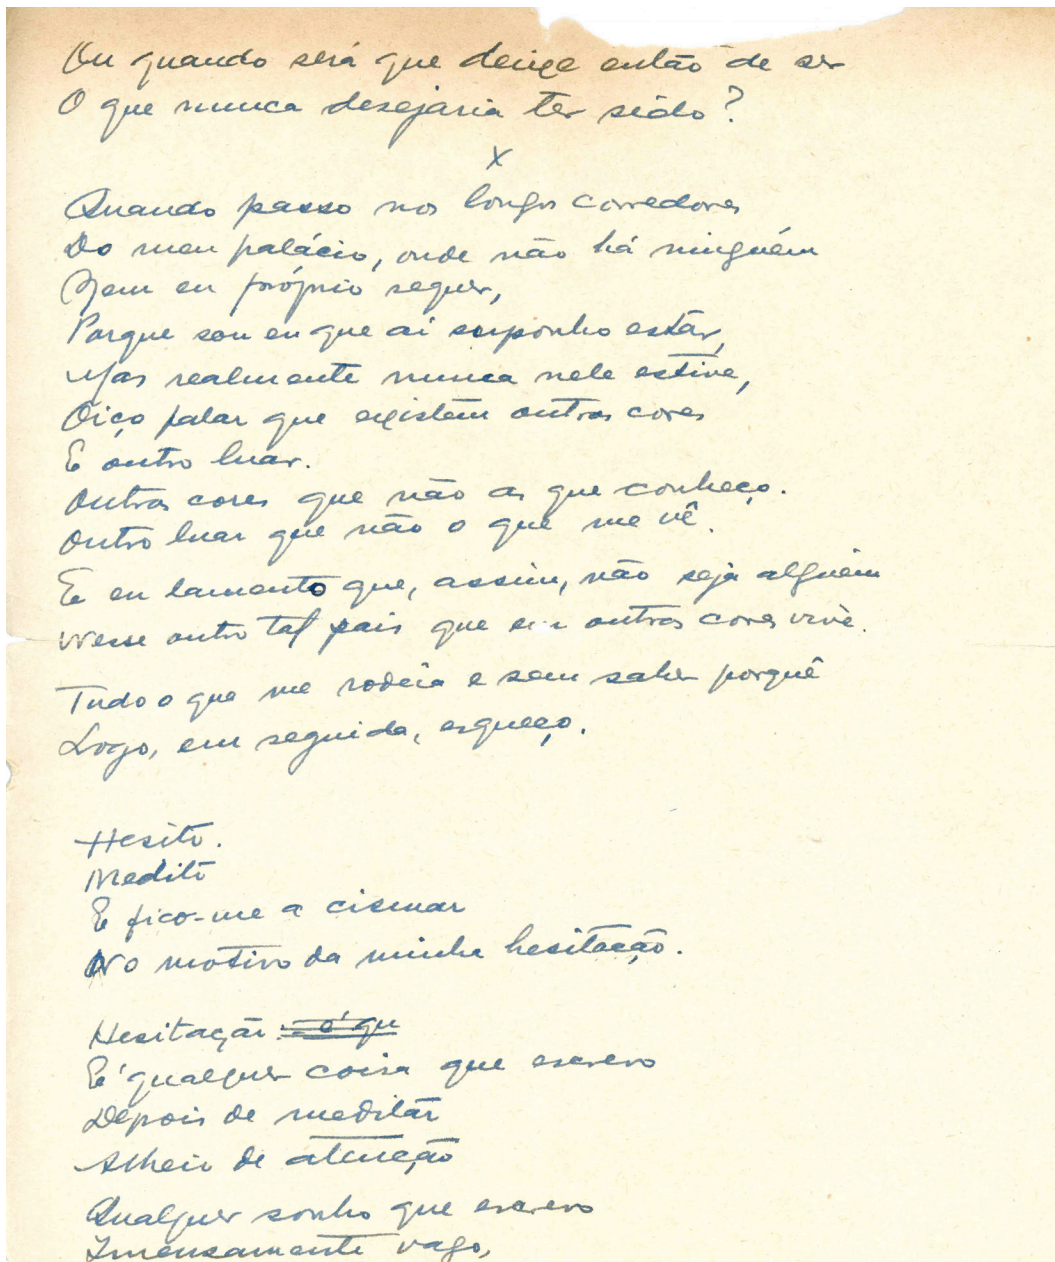 Ou quando será que deixe então de ser
O que nunca desejaria ter sido?
x
Quando passo nos longos corredores
Do meu palácio, onde não há ninguém
Nem eu próprio sequer,
Porque sou eu que aí suponho estar,
Mas realmente nunca nele estive,
Oiço falar que existem outras cores
E outro luar.
Outras cores que não as que conheço.
Outro luar que não o que me vê.
E eu lamento que, assim, não seja alguém
Nesse outro tal país que em outras cores vive.
Tudo o que me rodeia e sem saber porquê
Logo, em seguida, esqueço.
Hesito.
Medito
E fico-me a cismar
No motivo da minha hesitação.
Hesitação: é qu
É qualquer coisa que escrevo
Depois de meditar
Alheio de atenção
Qualquer sonho que escrevo
Imensamente vago,